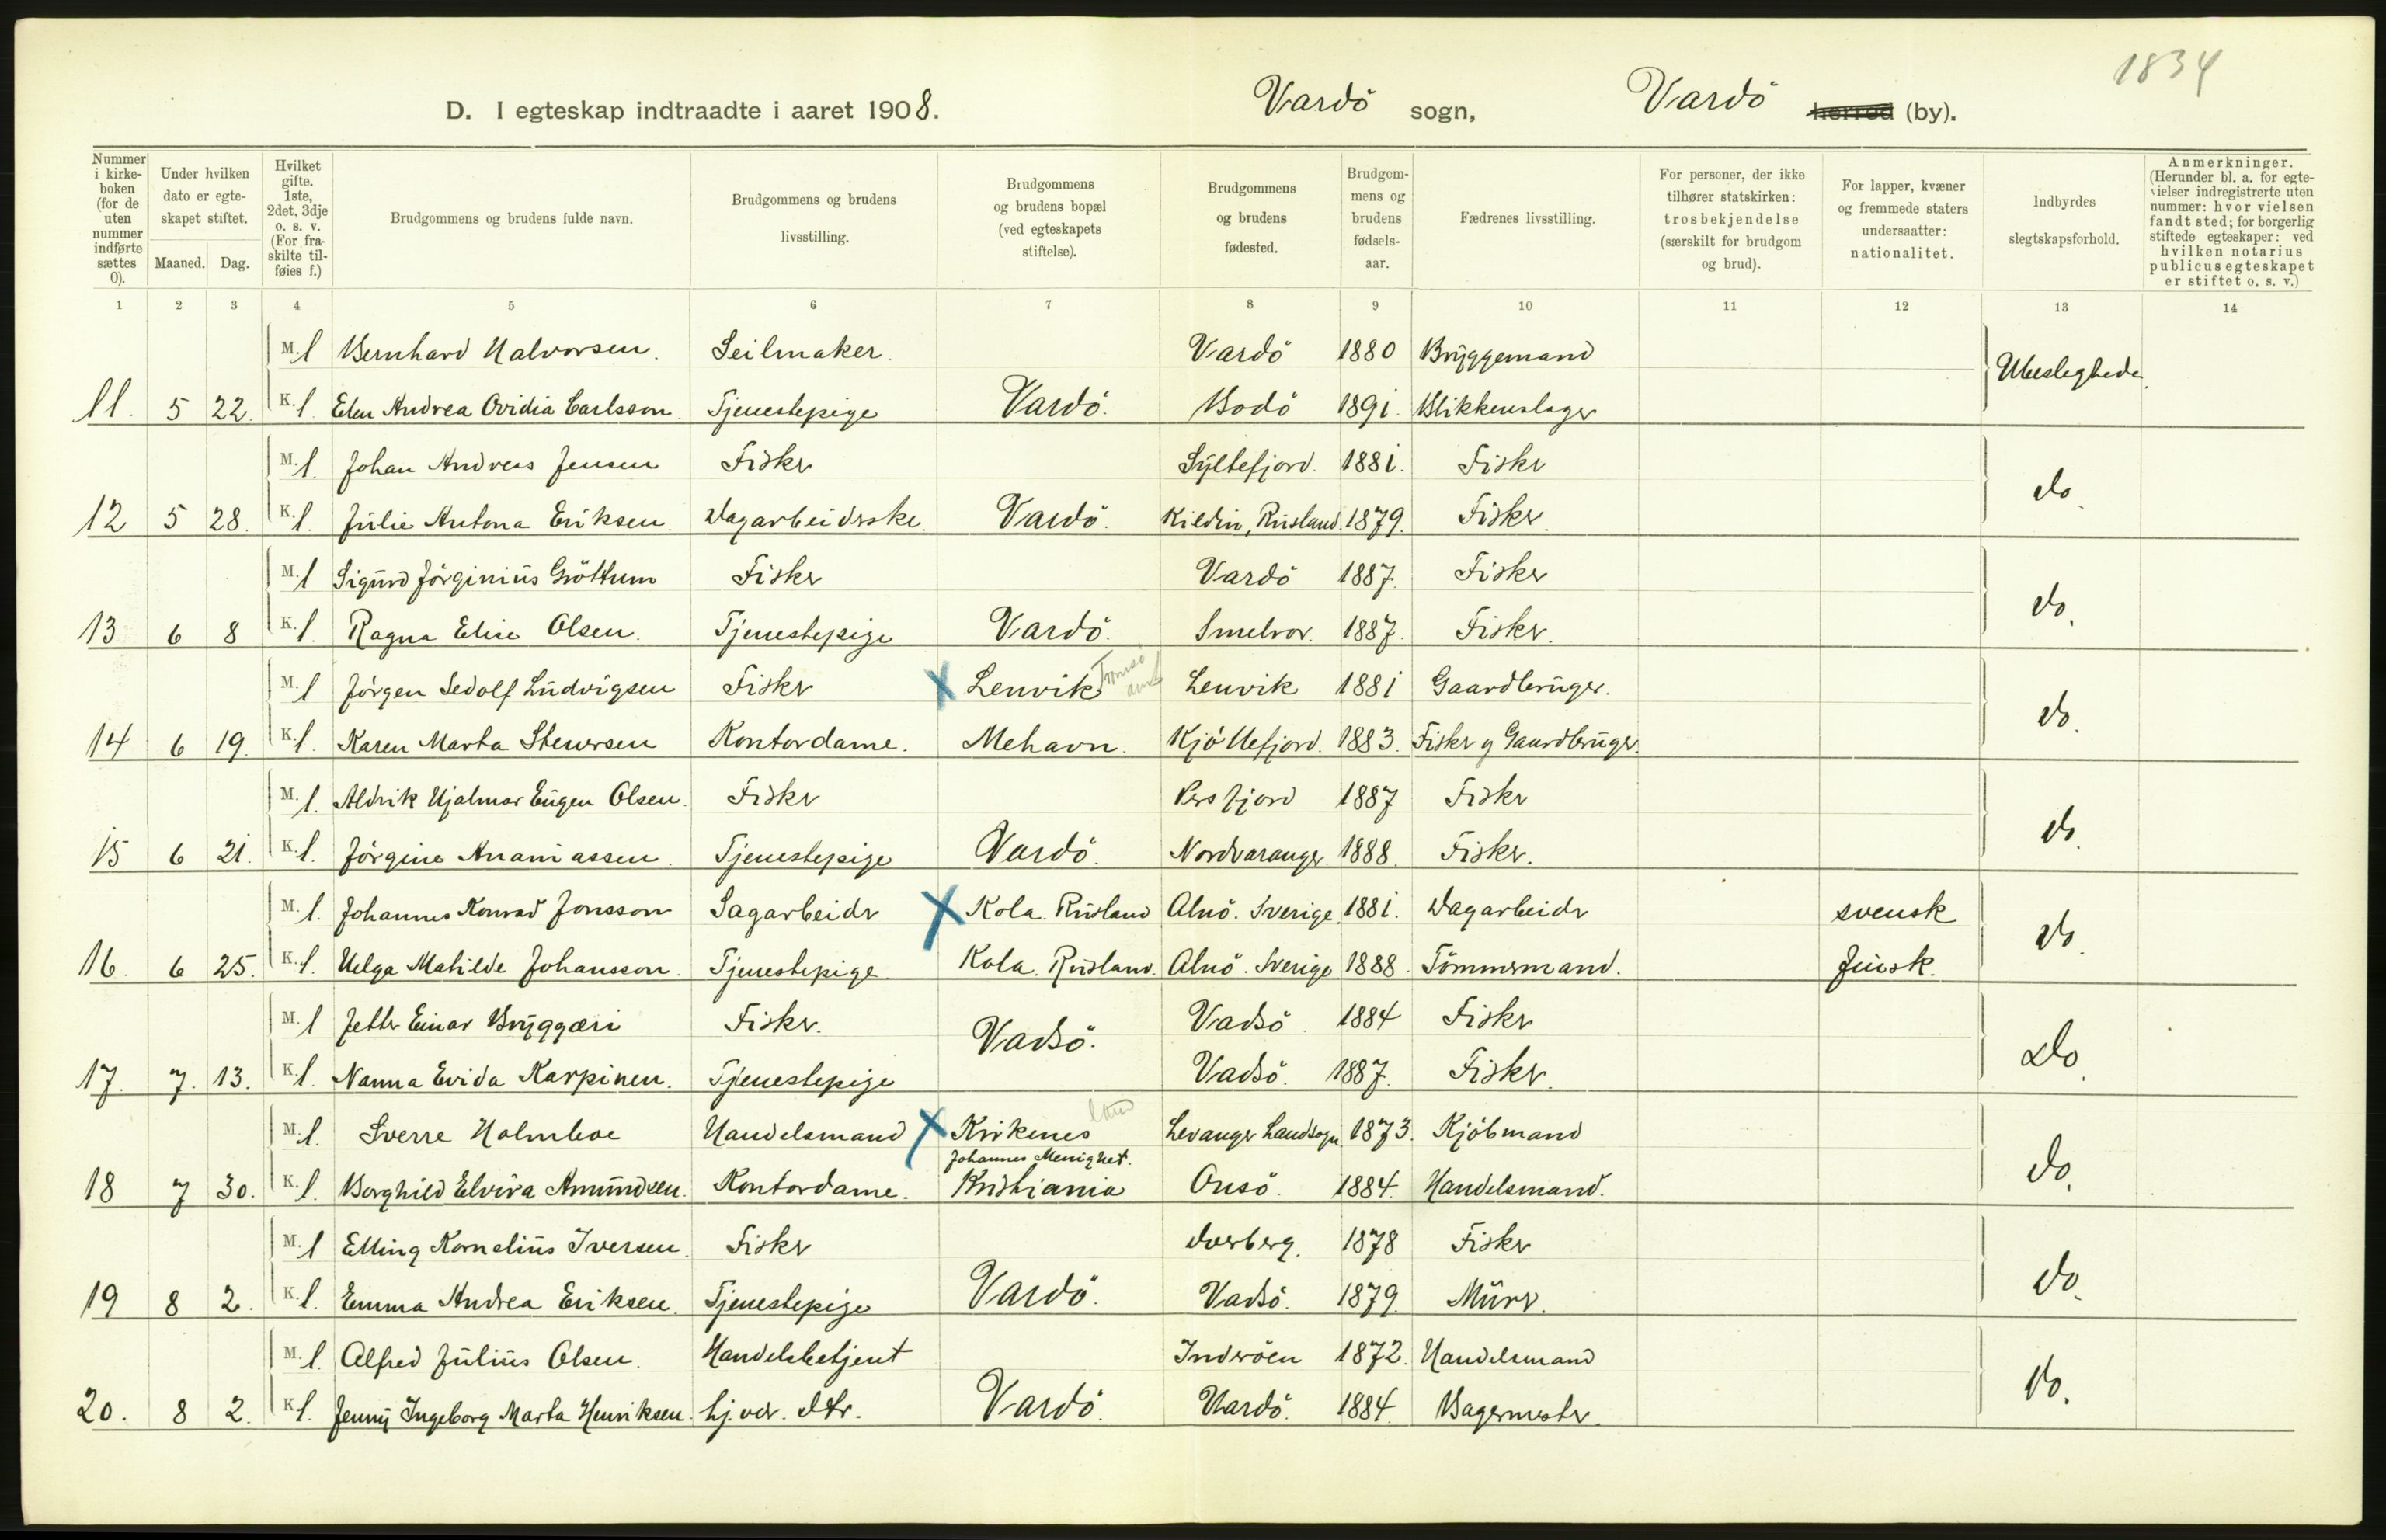 1834
D. I egteskap indtraadte i aaret 1908. Vardö sogn, Vardö herred (by).
Nummer i kirke-boken (for de uten nummer indførte sættes 0).
Under hvilken dato er egte-skapet stiftet.
Maaned. Dag.
Hvilket gifte. 1ste, 2det, 3dje o. s. v. (For fra-skilte til-føies f.)
Brudgommens og brudens fulde navn.
Brudgommens og brudens livsstilling.
Brudgommens og brudens bopæl (ved egteskapets stiftelse).
Brudgommens og brudens fødested.
Brudgom-mens og brudens fødsels-aar.
Fædrenes livsstilling.
For personer, der ikke tilhører statskirken: trosbekjendelse (særskilt for brudgom og brud).
For lapper, kvæner og fremmede staters undersaatter: nationalitet.
Indbyrdes slegtskapsforhold.
Anmerkninger. (Herunder bl. a. for egte-vielser indregistrerte uten nummer: hvor vielsen fandt sted; for borgerlig stiftede egteskaper: ved hvilken notarius publicus egteskapet er stiftet o. s. v.)
1 2 3 4 5 6 7 8 9 10 11 12 13 14
M. 1 Bernhard Halvorsen. Seilmaker. Vardö 1880 Bryggemand Ubeslegtede.
11. 5 22. K. 1. Elen Andrea Ovidia Carlsson. Tjenestepige Vardö. Bodö 1891. Blikkenslager
M. 1. Johan Andreas Jensen Fisker Syltefjord. 1881. Fisker do.
12 5 28. K. 1. Julie Antona Eriksen. Dagarbeiderske. Vardö. Kildin, Rusland. 1879. Fisker.
M. 1 Sigurd Jörginius Gröttum Fisker Vardö 1887. Fisker do.
13 6 8 K. 1. Ragna Elise Olsen. Tjenestepige Vardö. Smelror. 1887. Fisker.
M. 1 Jörgen Sedolf Ludvigsen Fisker X Lenvik Tromsö amt Lenvik 1881 Gaardbruger. do.
14 6 19. K. 1. Karen Marta Stenersen Kontordame. Mehavn. Kjöllefjord. 1883. Fisker og Gaardbruger.
M. 1. Aldrik Hjalmar Eugen Olsen. Fisker Persfjord 1887 Fisker do.
15 6 21. K. 1. Jörgine Ananiassen. Tjenestepige Vardö. Nordvaranger. 1888. Fisker.
M. 1. Johannes Konrad Jonsson Sagarbeider X Kola. Rusland Alnö. Sverige. 1881. Dagarbeider svensk do.
16. 6 25. K. 1. Helga Matilde Johansson. Tjenestepige Kola. Rusland. Alnö. Sverige 1888. Tömmermand. finsk.
M. 1 Jetter Einar Bryggæri Fisker. Vadsö. Vadsö. 1884 Fisker Do.
17. 7. 13. K. 1. Nanna Evida Karpinen. Tjenestepige Vadsö. 1887. Fisker.
M. 1. Sverre Holmboe Handelsmand X Kirkenes Levanger Landsogn. 1873. Kjöbmand do.
Johannes Menighet.
18 7 30. K. 1. Borghild Elvira Amundsen. Kontordame. Kristiania Onsö. 1884. Handelsmand.
M. 1 Elling Kornelius Iversen. Fisker Dverberg. 1878 Fisker do.
19 8 2. K. 1. Emma Andrea Eriksen. Tjenestepige Vardö. Vadsö. 1879. Murer.
M. 1. Alfred Julius Olsen. Handelsbetjent Inderöen 1872. Handelsmand do.
20. 8 2. K. 1. Jenny Ingeborg Marta Henriksen. hj.vær. dtr. Vardö. Vardö. 1884. Bagermester.